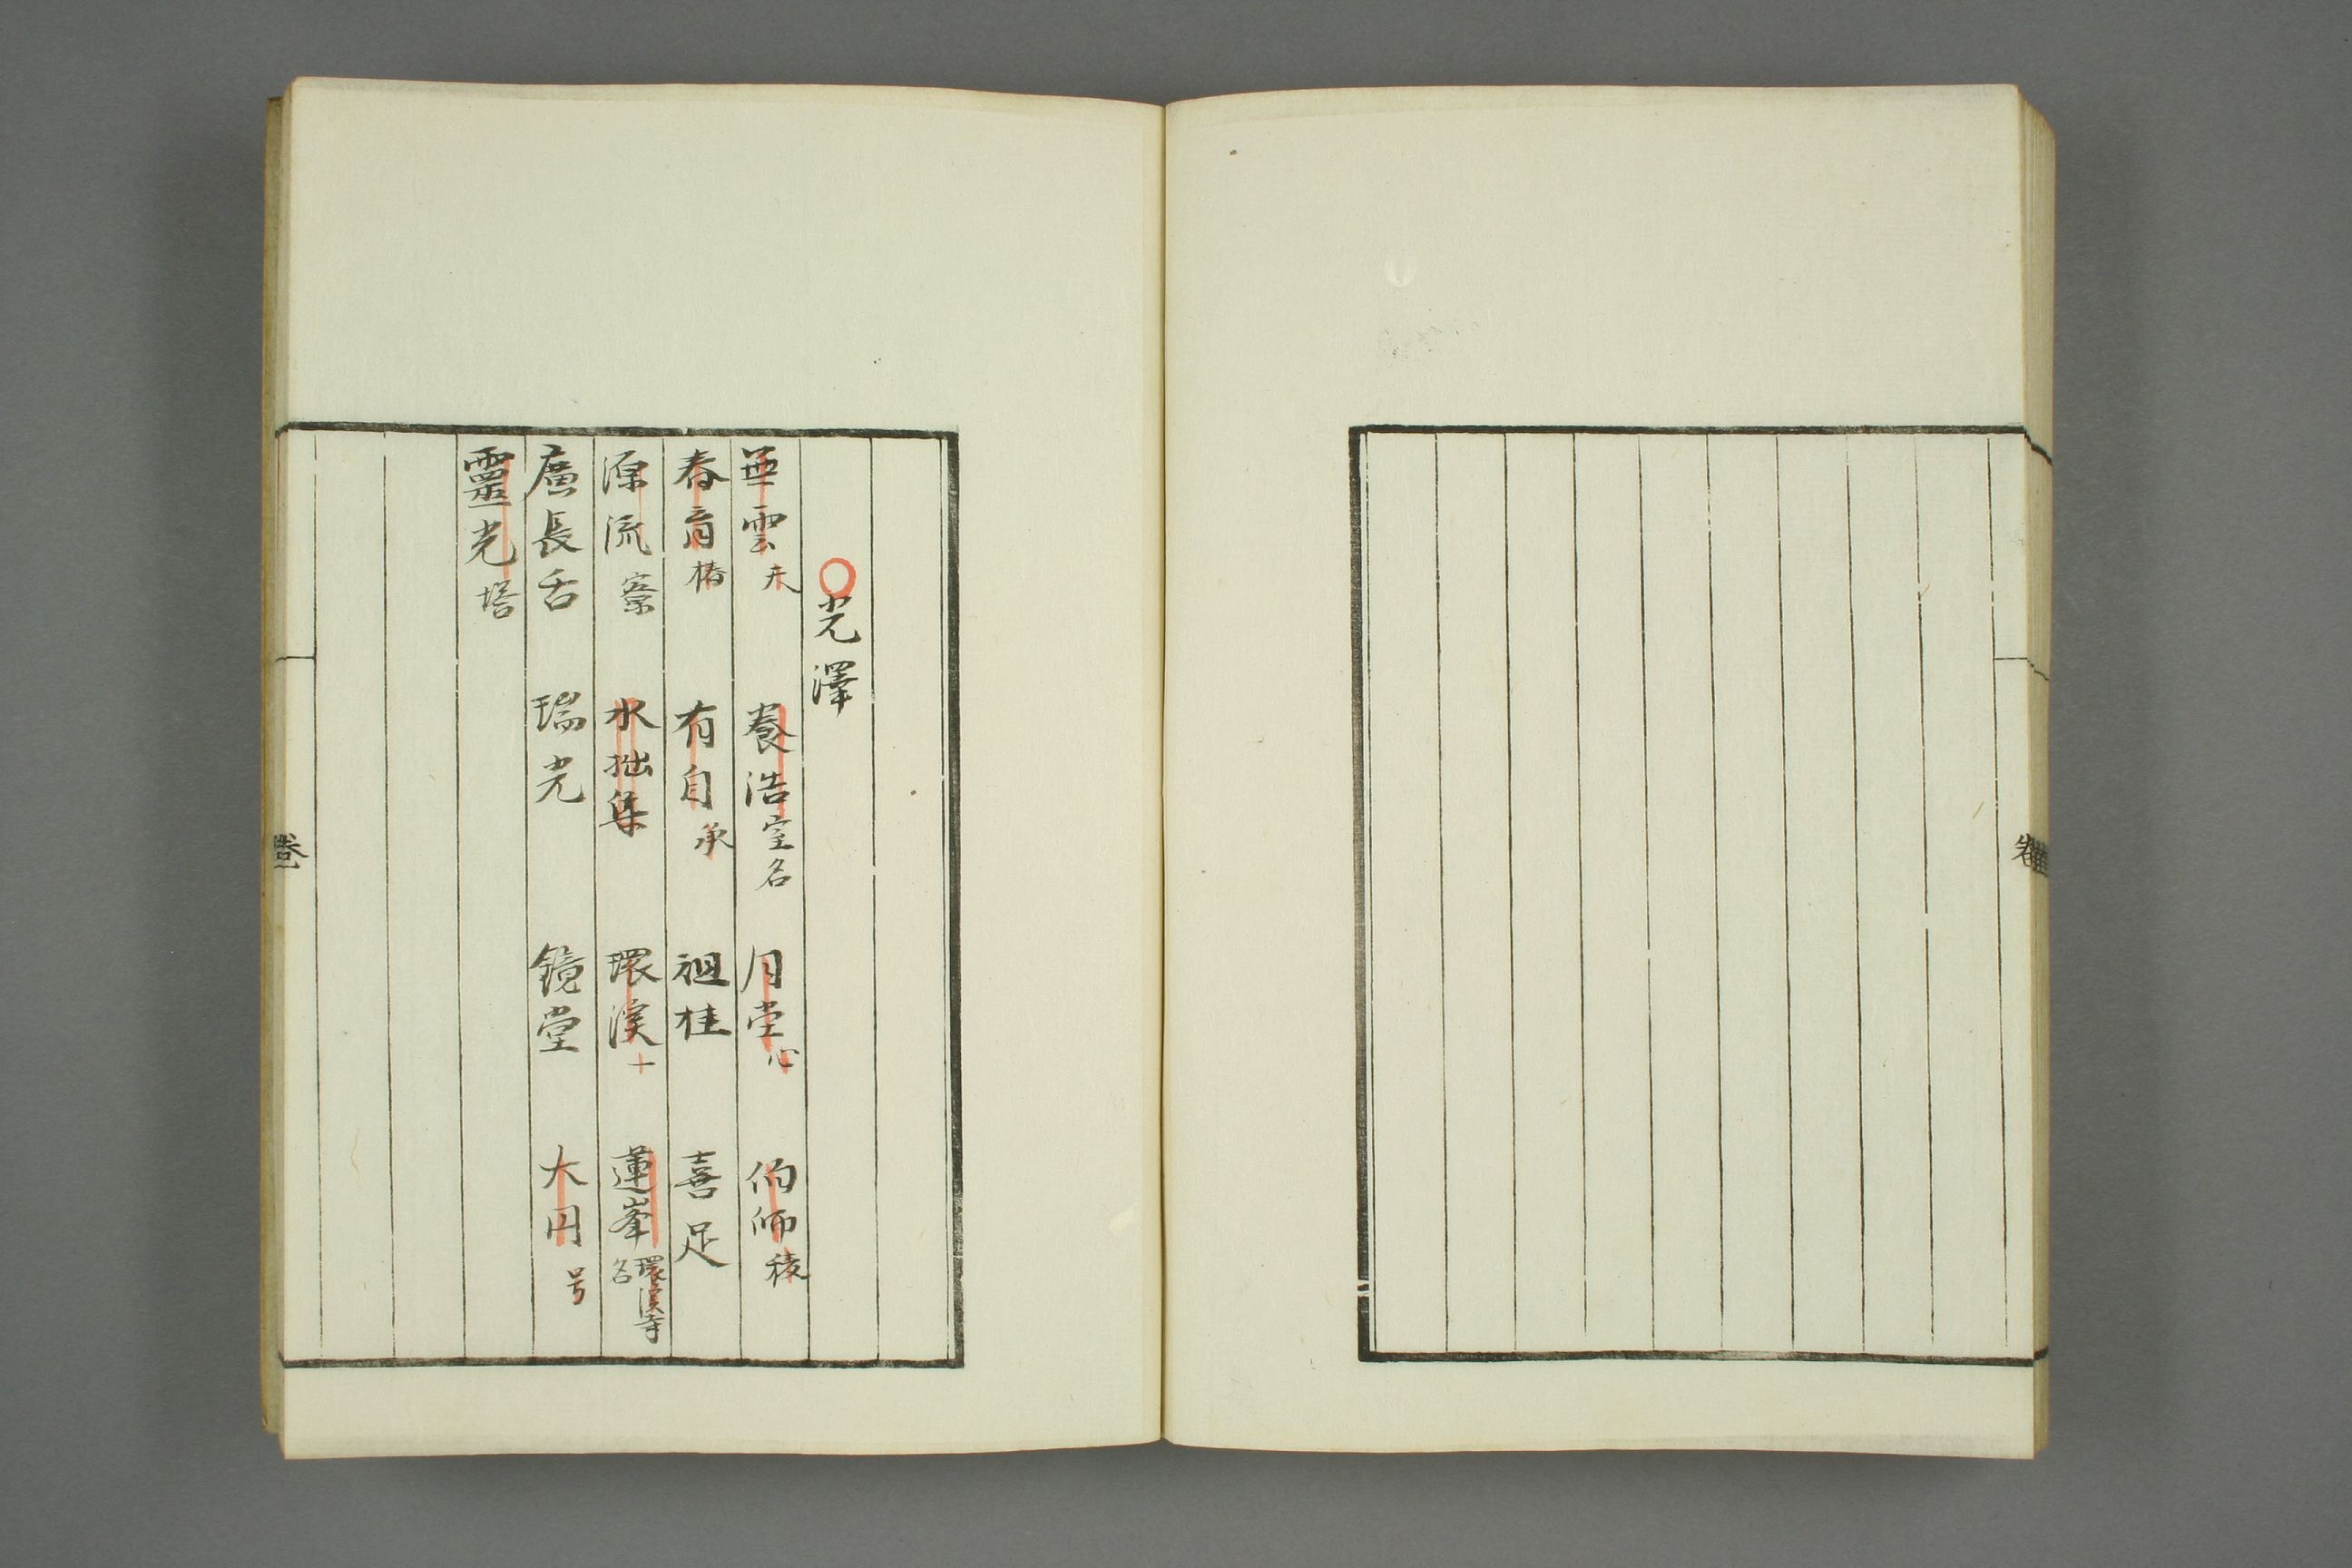 光澤
雲夫 養浩室名 月堂心 伯師稜
春育椿 有自承 祖桂 喜足
源流 水拙集 環溪一 蓮峯環溪寺名
廣長舌 瑞光 鏡堂 大円号
靈光塔
卷